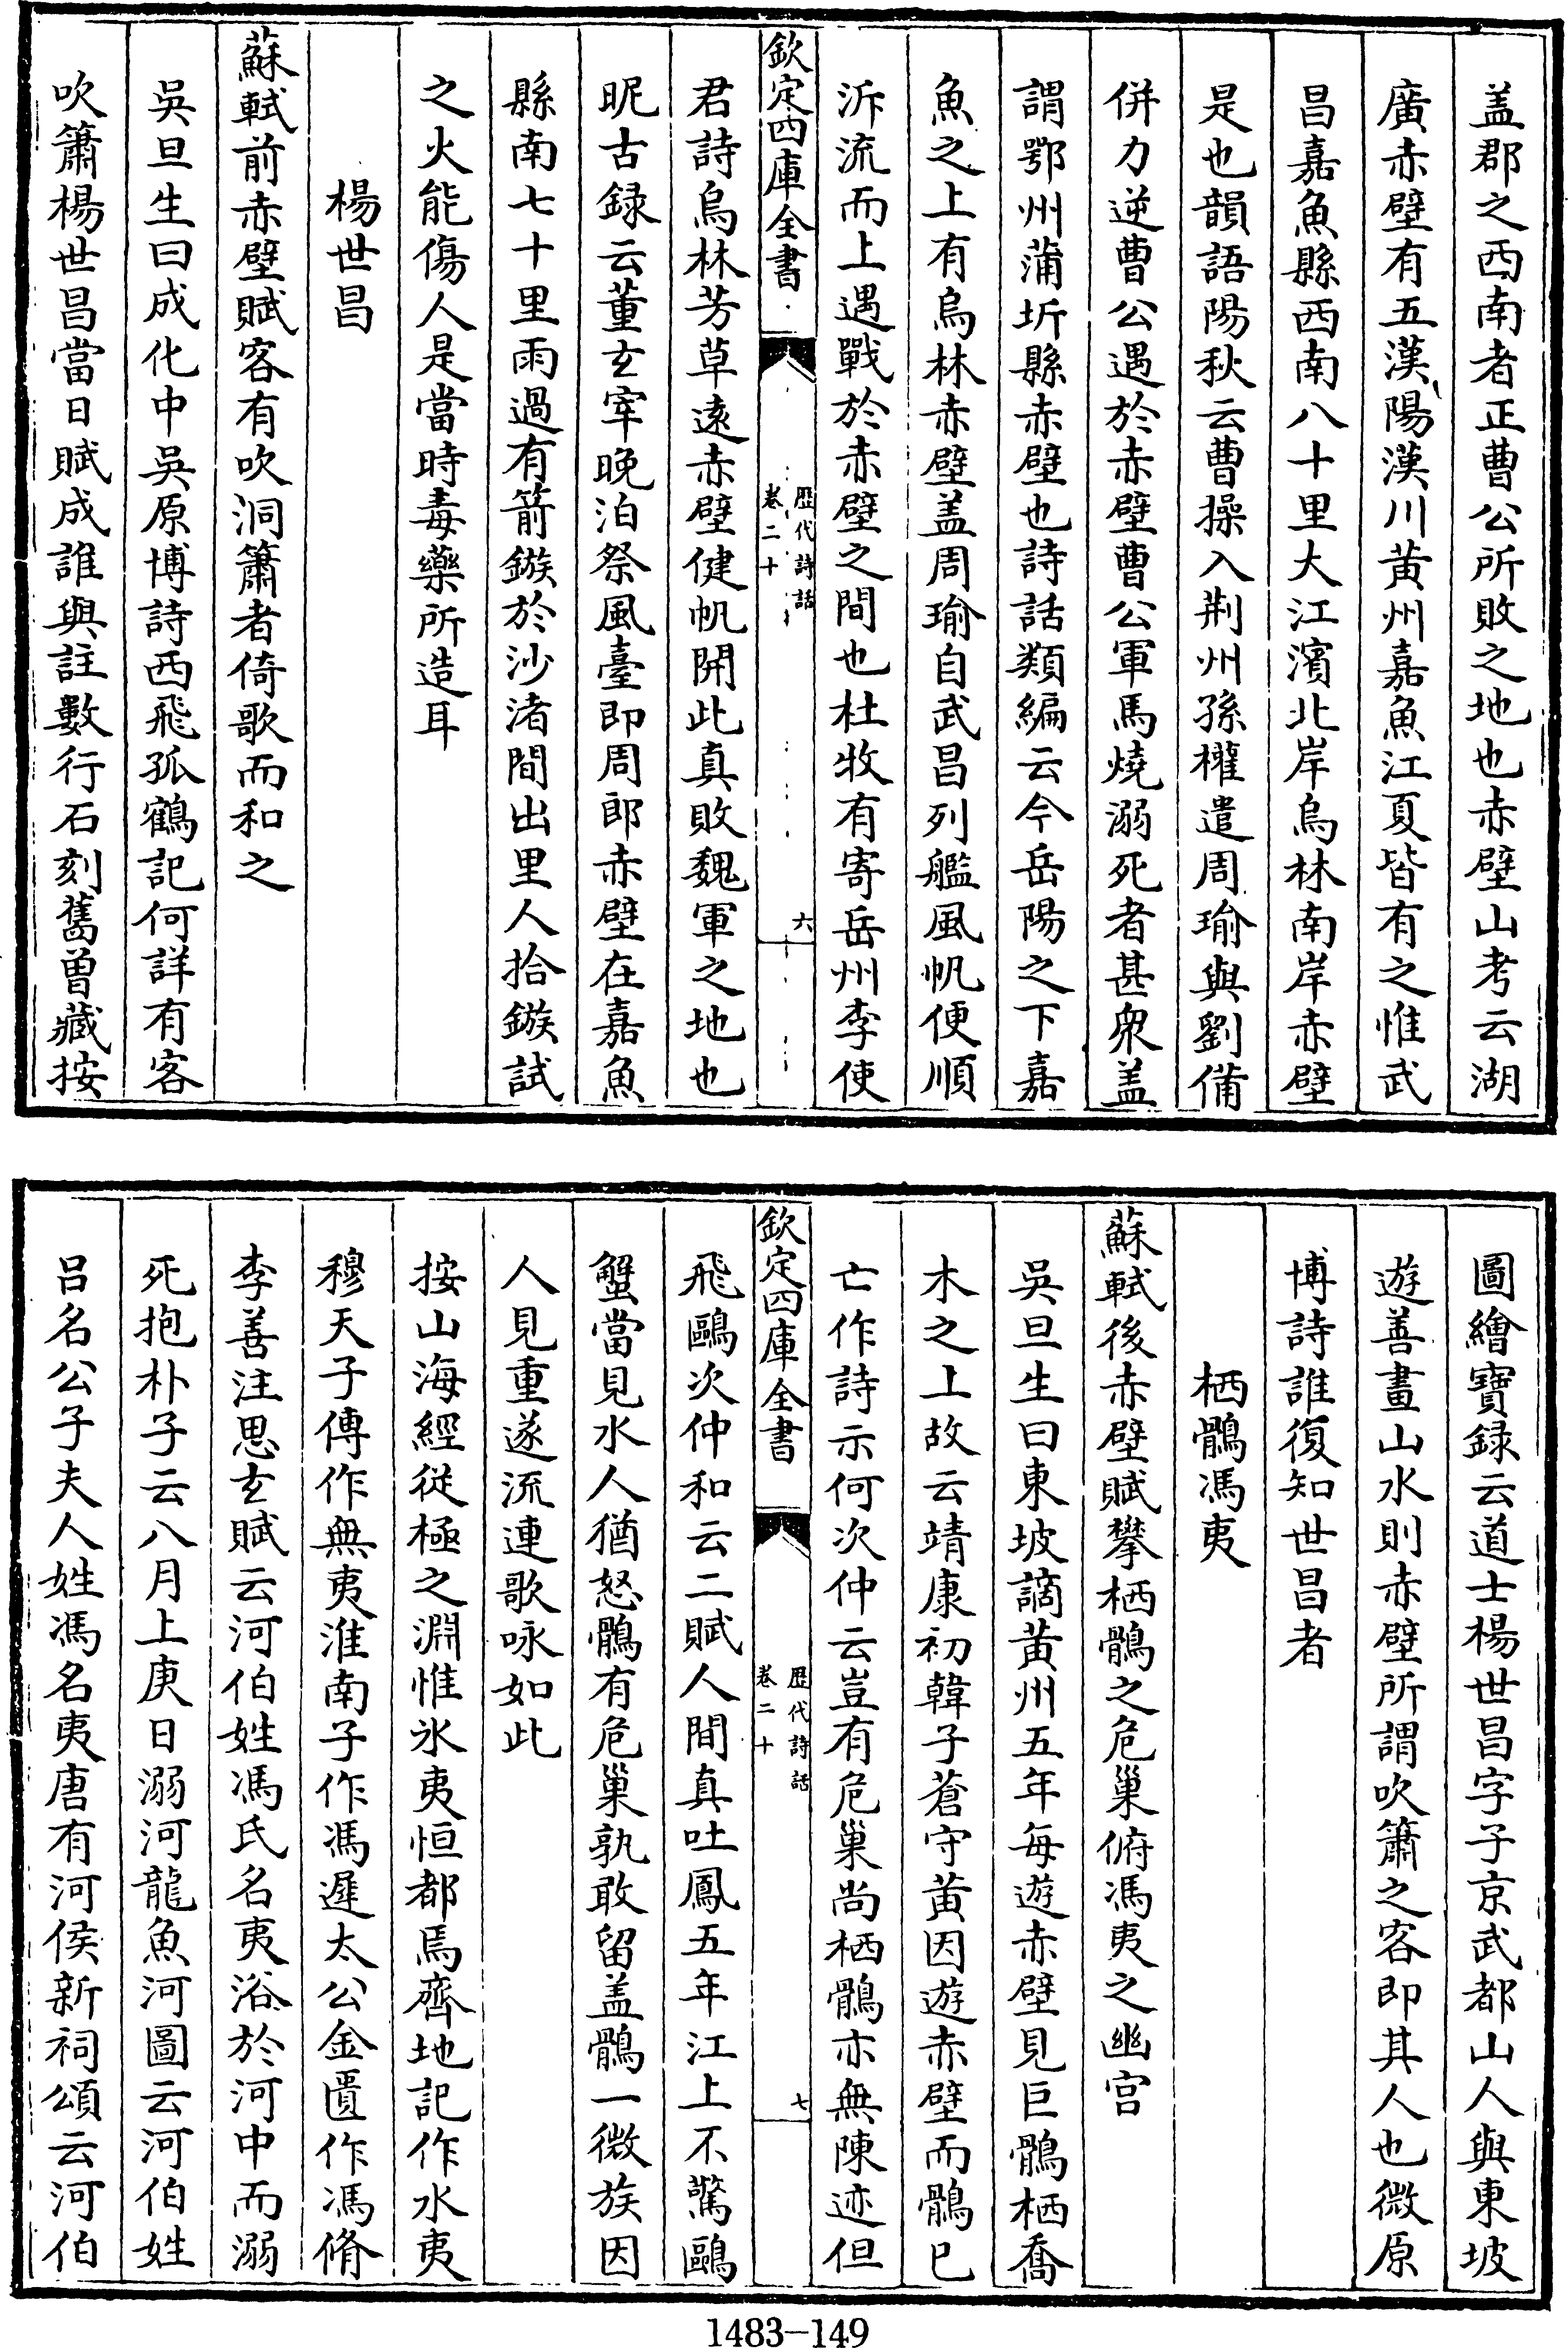 盖郡之西南者正曹公所敗之地也赤壁山考云湖
廣赤壁有五漢陽漢川黄州嘉魚江夏皆有之惟武
昌嘉魚縣西南八十里大江濱北岸烏林南岸赤壁
是也韻語陽秋云曹操入荆州孫權遣周瑜與劉備
併力逆曹公遇於赤壁曹公軍馬燒溺死者甚衆盖
謂鄂州蒲圻縣赤壁也詩話類編云今岳陽之下嘉
魚之上有烏林赤壁盖周瑜自武昌列艦風帆便順
泝流而上遇戰於赤壁之間也杜牧有寄岳州李使
欽定四庫全書
歴代詩話
卷二十
六
君詩烏林芳草遠赤壁健帆開此真敗魏軍之地也
昵古録云董玄宰晚泊祭風臺即周郎赤壁在嘉魚
縣南七十里雨過有箭鏃於沙渚間出里人拾鏃試
之火能傷人是當時毒藥所造耳
楊世昌
蘇軾前赤壁賦客有吹洞簫者倚歌而和之
吳旦生曰成化中吳原博詩西飛孤鶴記何詳有客
吹簫楊世昌當日賦成誰與註數行石刻舊曽藏按
圖繪寶録云道士楊世昌字子京武都山人與東坡
遊善畫山水則赤壁所謂吹簫之客即其人也微原
博詩誰復知世昌者
栖鶻馮夷
蘇軾後赤壁賦攀栖鶻之危巢俯馮夷之幽宫
吳旦生曰東坡謫黄州五年每遊赤壁見巨鶻栖喬
木之上故云靖康初韓子蒼守黄因遊赤壁而鶻已
亡作詩示何次仲云豈有危巢尚栖鶻亦無陳迹但
欽定四庫全書
歴代詩話
卷二十
七
飛鷗次仲和云二賦人間真吐鳳五年江上不驚鷗
蟹當見水人猶怒鶻有危巢孰敢留盖鶻一微族因
人見重遂流連歌咏如此
按山海經從極之淵惟氷夷恒都焉齊地記作水夷
穆天子傳作無夷淮南子作馮遲太公金匱作馮脩
李善注思玄賦云河伯姓馮氏名夷浴於河中而溺
死抱朴子云八月上庚日溺河龍魚河圖云河伯姓
吕名公子夫人姓馮名夷唐有河侯新祠頌云河伯
1483-149